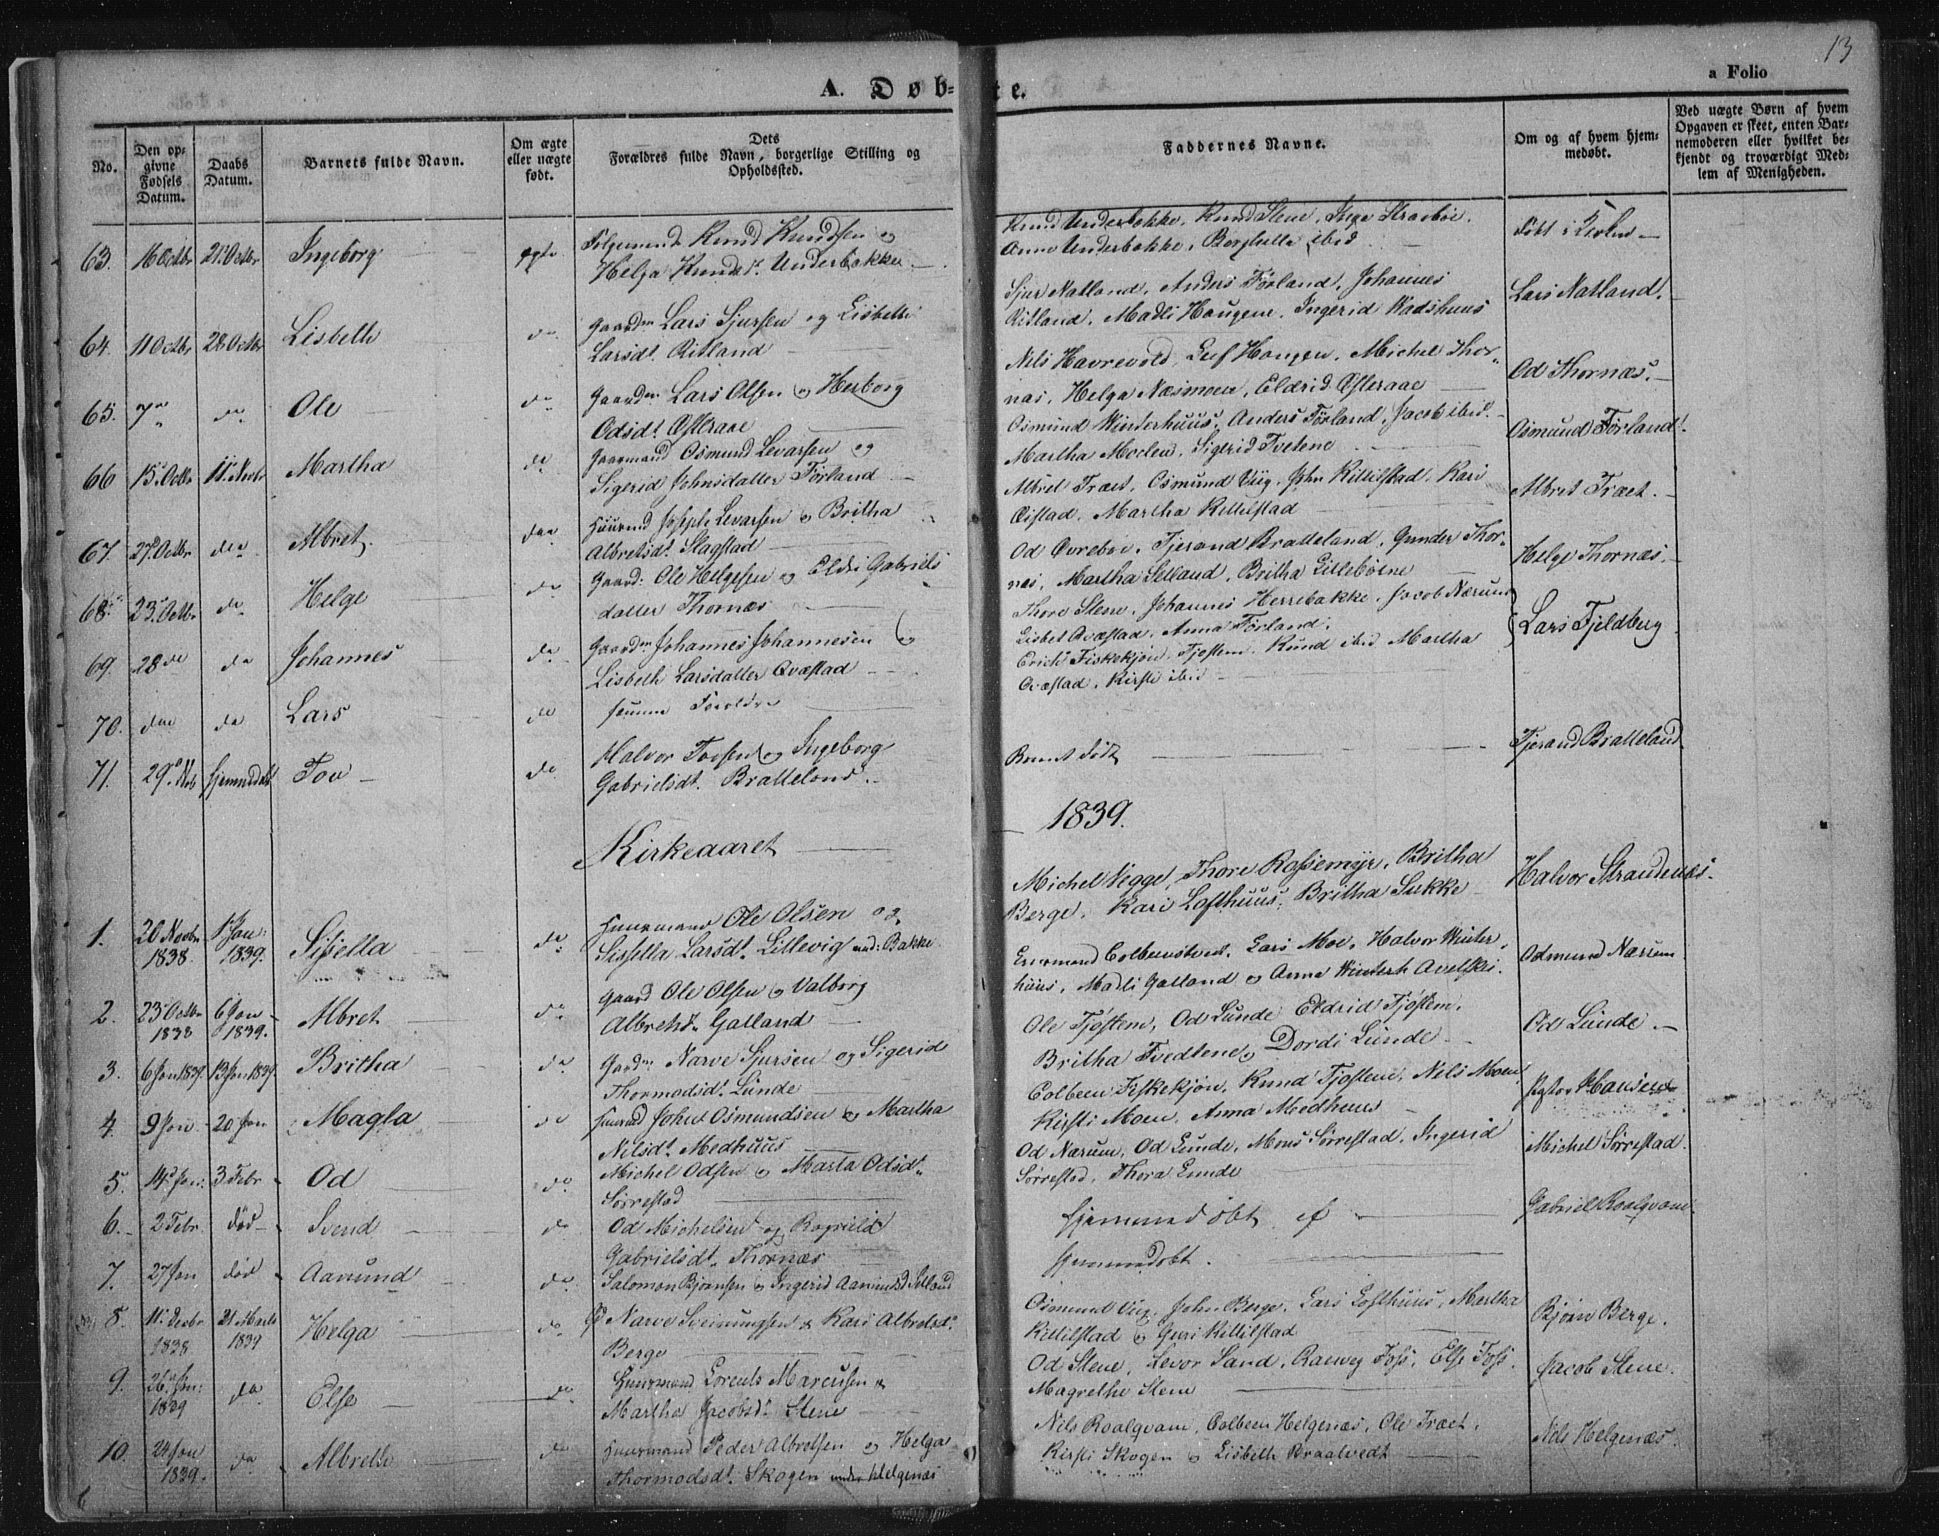 13
A. Døb-te.
a Folio
No.
Den op-
givne
Fødsels
Datum.
Daabs
Datum.
Barnets fulde Navn.
Om ægte
eller uægte
født.
Dets
Forældres fulde Navn, borgerlige Stilling og
Opholdssted.
Faddernes Navne.
Om og af hvem hjem-
medøbt.
Ved uægte Børn af hvem
Opgaven er skeet, enten Bar-
nemoderen eller hvilket be-
kjendt og troværdigt Med-
lem af Menigheden.
63. 16 Octbr 21 Octbr Ingeborg ægte Knud Knudsen og
Helga Knudsdt. Underbakke
Knud Underbakke, Knud Stene, Inge
Anne Underbakke, ibid
64. 11 Octbr 28 Octbr Lisbeth do Gaardm Lars Sjursen og Lisbeth
Larsdt. Ritland
Sjur Natland, Anders Førland, Johannes
Ritland, Madli Haugene, Ingerid Wadshuus
Lars Natland.
65. 7de do Ole do Gaardm Lars Olsen og Herborg
Odsdt. Østeraae
Nils Havrevold, Leif Haugen, Michel Thor-
næs, Helga Næsmoen, Eldrid Østeraae
Od Thornæs.
66 15 Octbr 11 Novbr Martha do Gaardmand Osmund Levarsen og
Sigerid Johnsdatter Førland
Osmund Winterhuus, Anders Førland, Jacob ibid.
Martha Moelen, Sigerid Tvetene
Osmund Førland.
67. 27 Octbr do Albret. do Huusmd Joseph Levarsen og Britha
Albretsdt. Slagstad
Albret Træet, Osmund Viig, John Kittilstad, Kari
Martha Kittilstad
Albret Træet.
68. 23 Octbr do Helge do Gaard: Ole Helgesen og Eldri Gabriels
datter Thornæs
Od Øvrebøe, Tjerand Bratteland, Gunder Thor-
næs, Martha Selland, Britha Lillebøene
Helge Thornæs.
69. 28de do Johannes do Gaardm Johannes Johannesen og
Lisbeth Larsdatter Qvæstad
Thore Stene, Johannes Herrebakke, Jacob Nærum
Lisbet Qvæstad, Anna Førland.
Lars Fjeldberg
70. do do Lars do samme Forældre
Erich Fiskekjøn, Tjostem, Knud ibid Martha
Qvæstad, Kirsti ibid
71. 29 Nov hjemmedøbt Tov do Halvor Tovsen og Ingeborg
Gabrielsdt. Bratteland
født
Tjerand Bratteland
Kirkeaaret 1839.
1. 20 Novbr
1838 1 Jan:
1839. Sissella do Huusmand Ole Olsen og
Sissella Larsdt. Lillevig und: Bakke
Michel Vegge, Thore Rossemyr, Britha
Berge, Kari Lofthuus, Britha Sukke
Halvor Strandenæs.
2. 23 Octbr
1838 6 Jan
1839. Albret do Gaard Ole Olsen og Valborg
Albretsdt. Galland
Colbeenstvedt, Lars Moe, Halvor Winter
huus, Madli Galland og Anna Winterh
Odmund Nærum
3. 6 Jan 1839. 13 Jan 1839. Britha do Gaardm Narve Sjursen og Sigerid
Thormodsdt. Lunde
Ole Tjøstem, Od Lunde, Eldrid Tjøstem,
Britha Tvedtene og Dordi Lunde
Od Lunde.
4. 9 Jan 20 Jan Magla do Huusmd John Osmundsen og Martha
Nilsdt. Medhuus
Colbeen Fiskekjøn, Knud Tjøstem, Nils Moen,
Kirsti Moen, Anna Medhuus
Pastor Hansen
5. 14 Jan: 3 Febr Od do Michel Odsen og Marta Odsdt.
Sørrestad
Od Nærum, Od Lunde, Mons Sørrestad, Ingerid
Sørrestad, Thora Lunde
Michel Sørrestad.
6. 2 Febr død Svend do Od Michelsen og Ragnild
Gabrielsdt. Thornæs
Hjemmedøbt af
Gabriel Roalqvam.
7. 27 Jan død Aamund do Salomon Bjørnsen og Ingerid Aamundsd Selland
Hjemmedøbt.
8. 11 Decbr
1838 21 Marts
1839 Helga do Narve Sveinungsen & Kari Albretsdt.
Berge
Osmund Viig, John Berge, Lars Lofthuus, Martha
Kittilstad og Guri Kittilstad
Bjørn Berge.
9. 26 Jan:
1839 do Else do Huusmand Lorents Marcusen &
Martha Jacobsdt. Stene
Od Stene, Levor Sand, Foss, Else Foss,
Magrethe Stene
Jacob Stene.
10. 24 Jan
1839. do Albretse do Huusmand Peder Albretsen og Helga
Thormodsdt. Skogen under Helgenæs
Nils Roalqvam, Colbeen Helgenæs, Ole Træet,
Kirsti Skogen & Lisbeth Braatvedt
Nils Helgenæs.